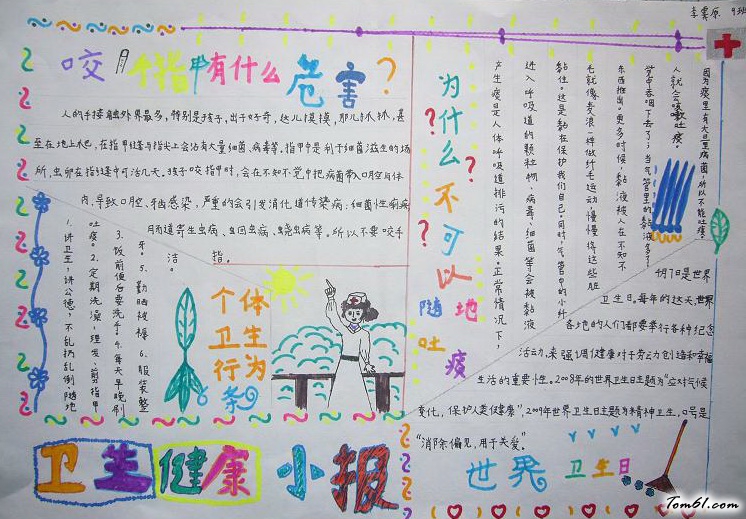 李雲原 9班
咬手指甲有什么危害？
人的手接触外界最多，特别是孩子，出于好奇，这儿摸摸，那儿抓抓，甚
至在地上爬，在指甲缝与指尖上会沾有大量细菌、病毒等。指甲缝是利于细菌滋生的场
所，虫卵在指缝中可活几天。孩子咬指甲时，会在不知不觉中把病菌带入口腔与体
内，导致口腔、牙齿感染，严重的会引发消化道传染病：细菌性痢疾
肠道寄生虫病、蛔虫病、蛲虫病等。所以不要咬手
指。
为什么不可以随地吐痰
？？？
因为痰里有大量病菌，所以不能吐痰。
人就会咳嗽吐痰。
气管里的黏液多了
东西推出。更多时候，黏液被人在不知不
毛就像麦浪一样做纤毛运动慢慢将这些脏
黏住。这是黏在保护我们自己，同时，气管中的小纤
进入呼吸道的颗粒物、病毒、细菌等会被黏液
产生痰是人体呼吸道排污的结果。正常情况下，
个体卫生行为
1.讲卫生，讲公德，不乱扔乱倒，随地
吐痰。2.定期洗澡，理发，剪指甲
3.饭前便后要洗手。4.每天早晚刷
牙。5.勤晒被褥。6.服装整
洁。
4月7日是世界
卫生日。每年的这天，世界
各地的人们都要举行各种纪念
活动，来强调健康对于劳动创造和幸福
生活的重要性。2008年的世界卫生日主题为“应对气候
变化，保护人类健康”，2009年世界卫生日主题为精神卫生，口号是
“消除偏见，用于关爱”。
世界卫生日
卫生健康小报
Tom61.com